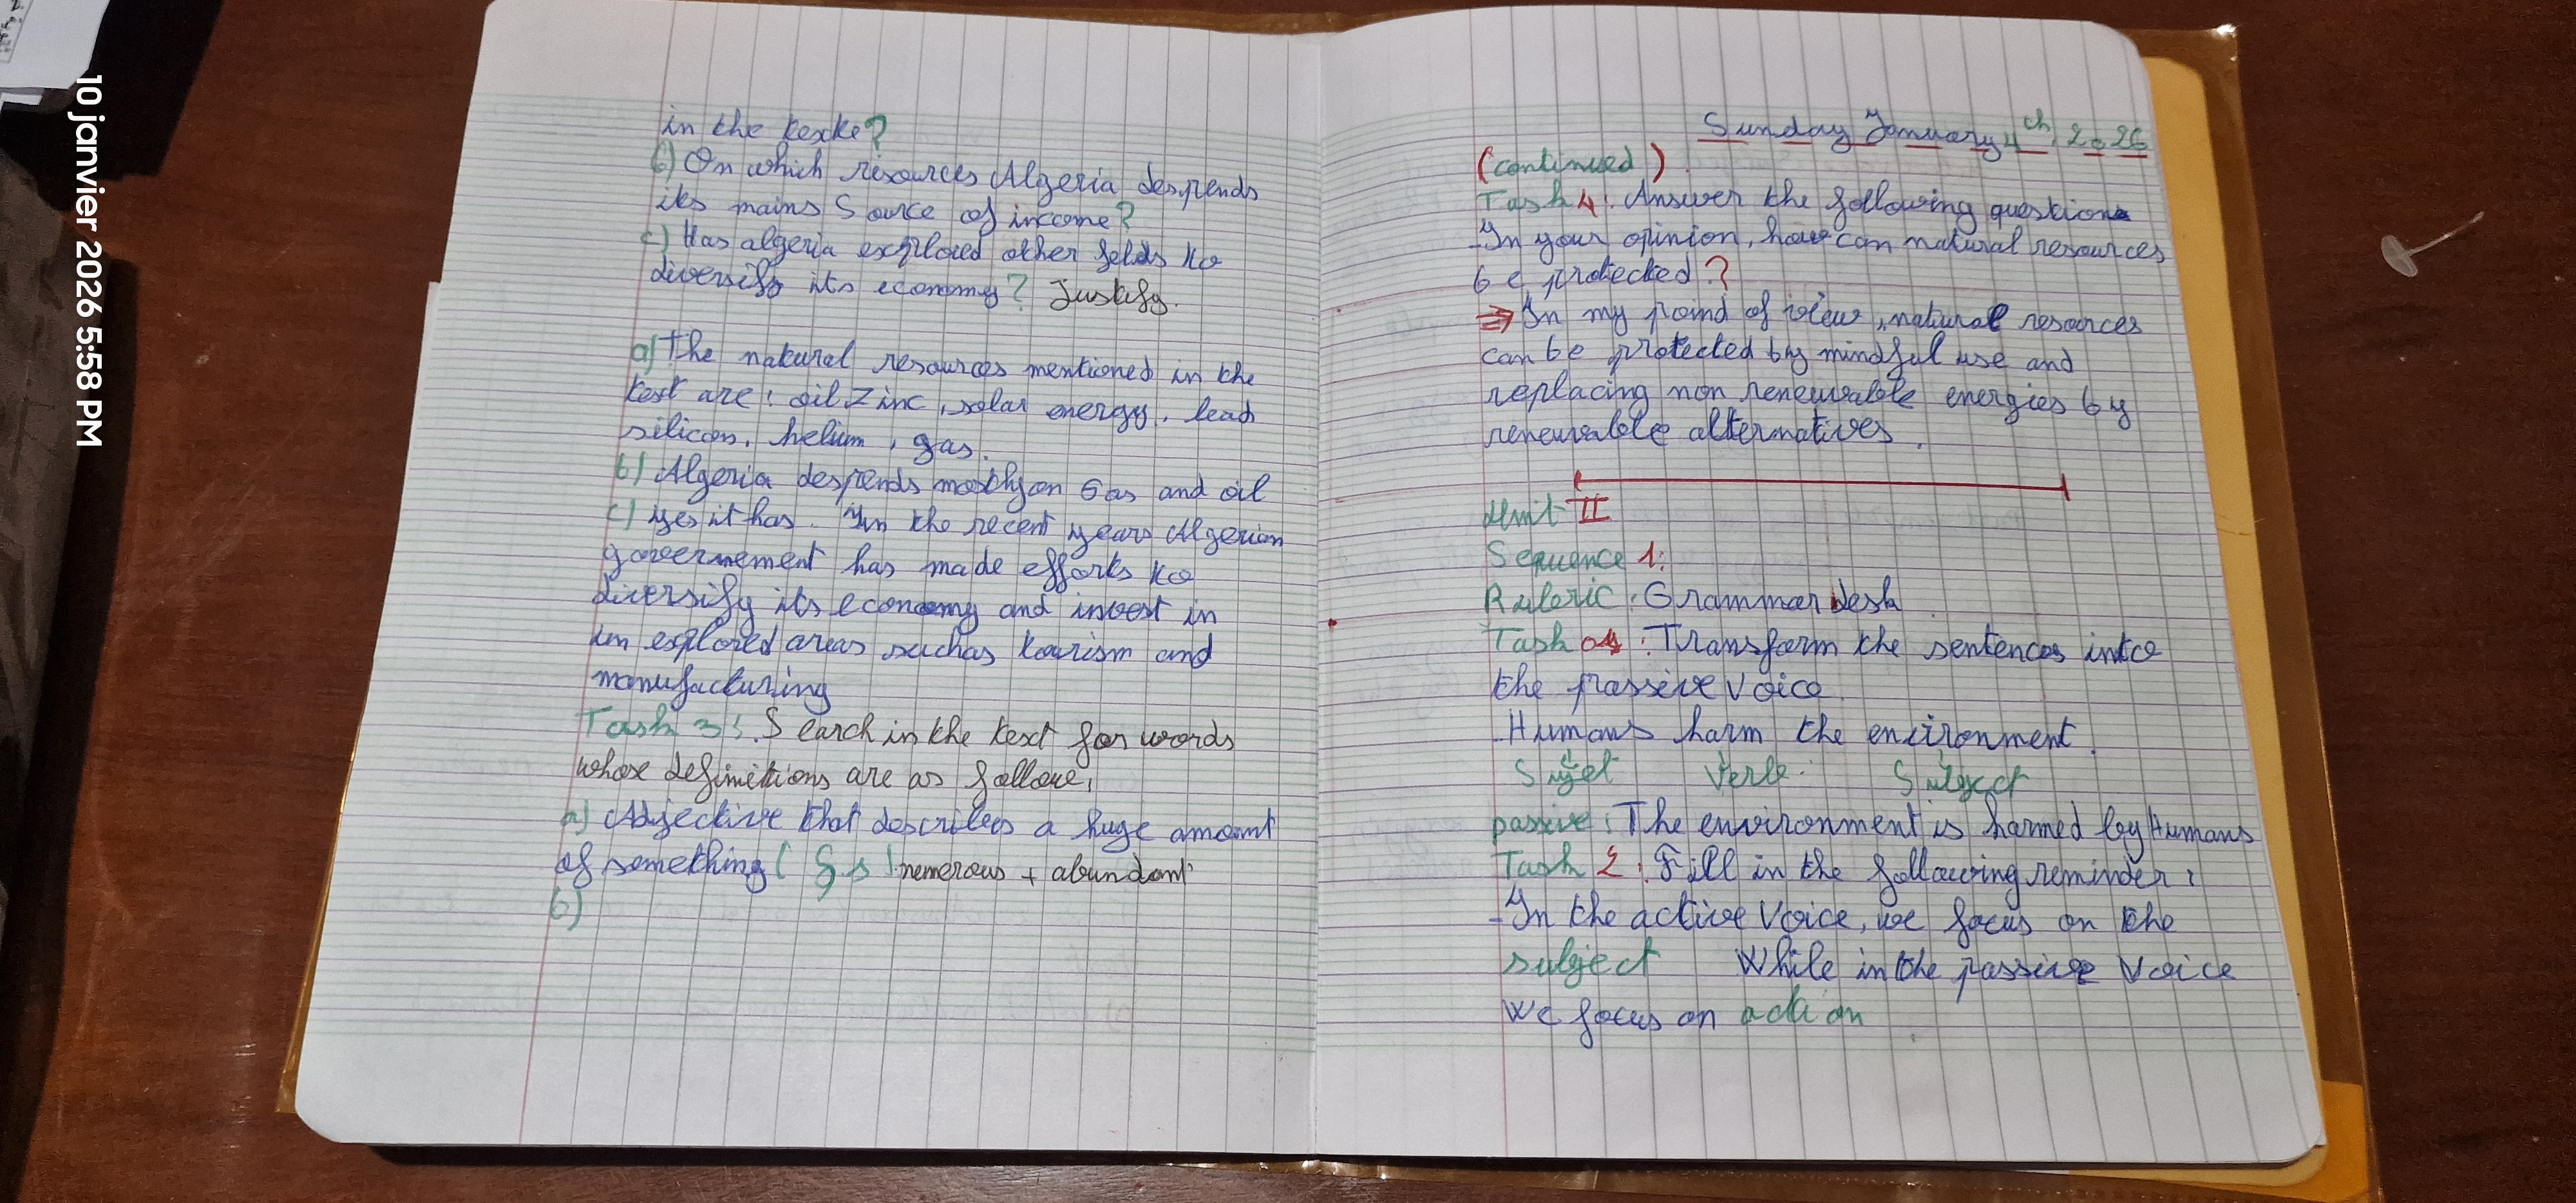 10 janvier 2026 5:58 PM
in the texte?
b) On which resources Algeria despends
its mains Source of income?
c) Has algeria explored other felds to
diversify its economy? Justify.
a) The natural resources mentioned in the
text are: oil Zinc, solar energy, lead
silicon, helium, gas.
b) Algeria despends mostly on Gas and oil
c) yes it has. In the recent years Algerian
governement has made efforts to
diversify its economy and invest in
un explored areas such as tourism and
manufacturing
Task 3: Search in the text for words
whose definitions are as follow:
a) Adjective that describes a huge amount
of something ( § 1) nemerous + abundant
b)
Sunday January 4th, 2026
(continued)
Task 4: Answer the following questions
-In your opinion, how can natural resources
be protected?
⇒ In my poind of view, natural resources
can be protected by mindful use and
replacing non renewable energies by
renewable alternatives.
Unit II
Sequence 1:
Rubric: Grammar desk
Task 01: Transform the sentences into
the passive voice.
-Humans harm the environment.
Sujet Verb. Subject
passive: The environment is harmed by Humans
Task 2: Fill in the following reminder:
-In the active Voice, we focus on the
subject While in the passive Voice
We focus on action